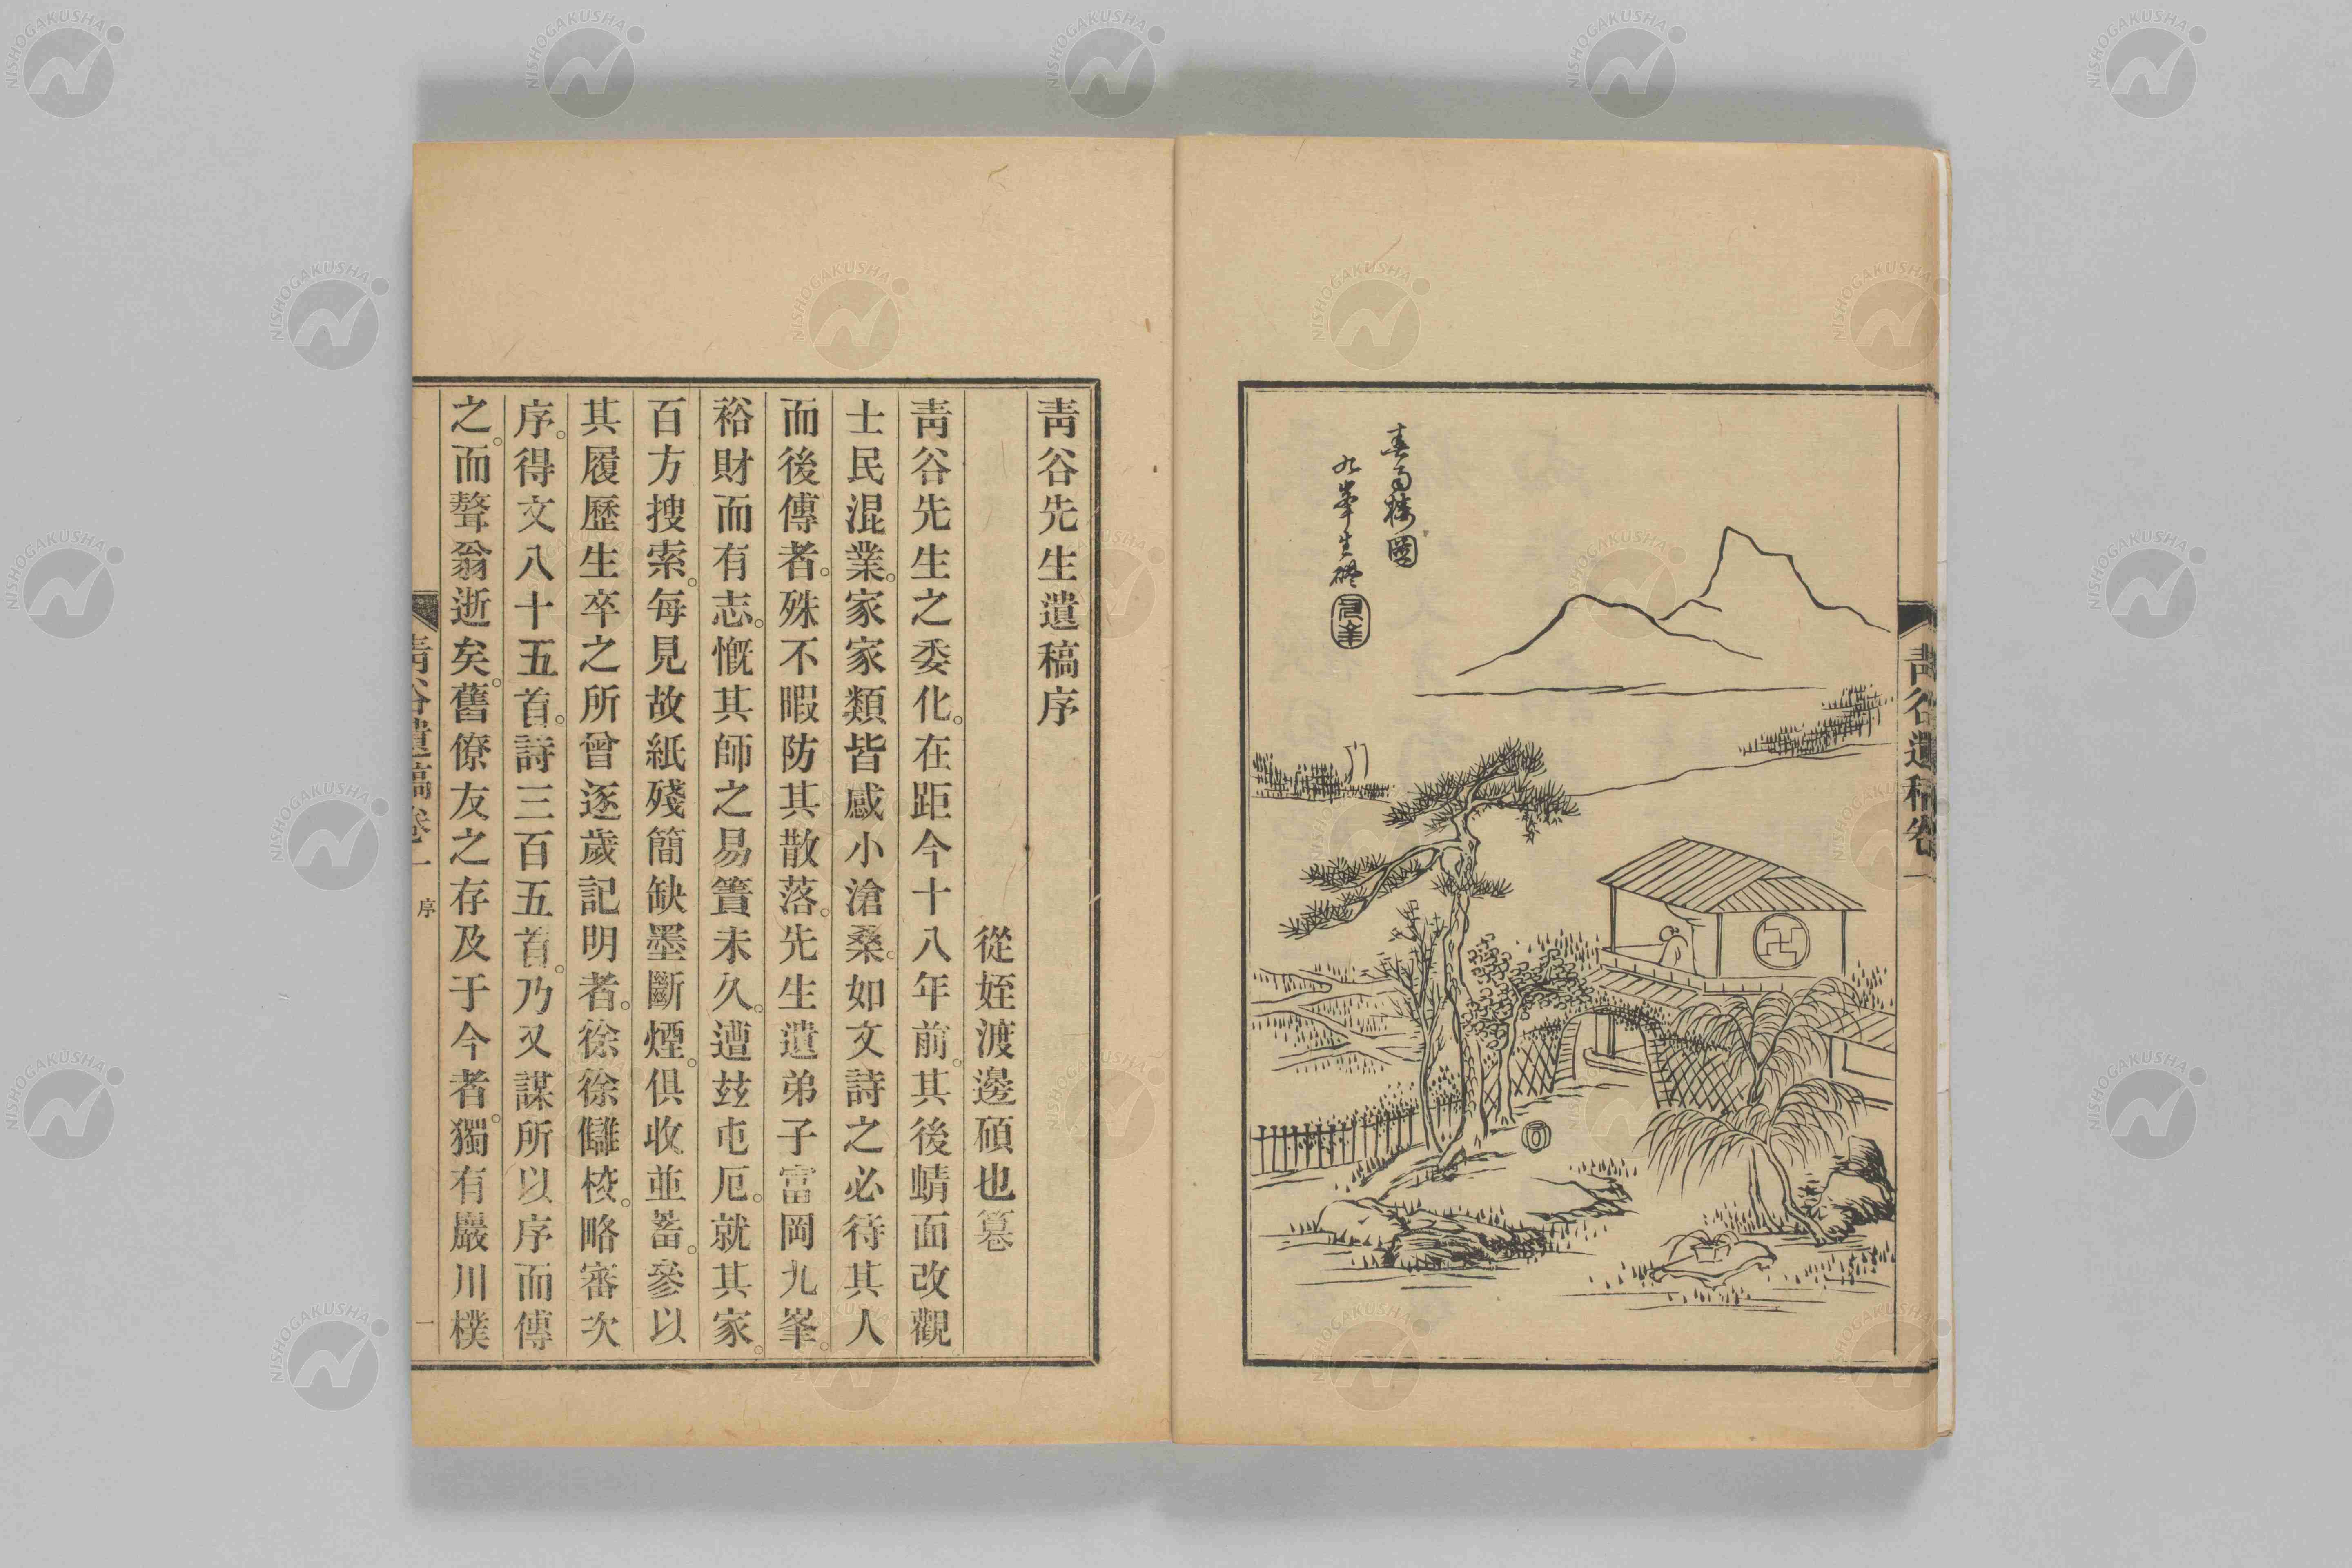 春雨樓圖
九峯生
靑谷遺稿卷一
靑谷先生遺稿序
從姪渡邊碩也篹
靑谷先生之委化。在距今十八年前。其後蜻面改觀
士民混業。家家類皆感小滄桑。如文詩之必待其人
而後傳者。殊不暇防其散落。先生遺弟子富岡九峯。
裕財而有志。慨其師之易簀未久。遭玆屯厄。就其家。
百方搜索。每見故紙殘簡缺墨斷煙。俱收並蓄。參以
其履歷生卒之所曾逐歲記明者。徐徐讎校。略審次
序。得文八十五首。詩三百五首。乃又謀所以序而傳
之。而聱翁逝矣。舊僚友之存及于今者。獨有巖川樸
靑谷遺稿卷一
序
一
NISHOGAKUSHA